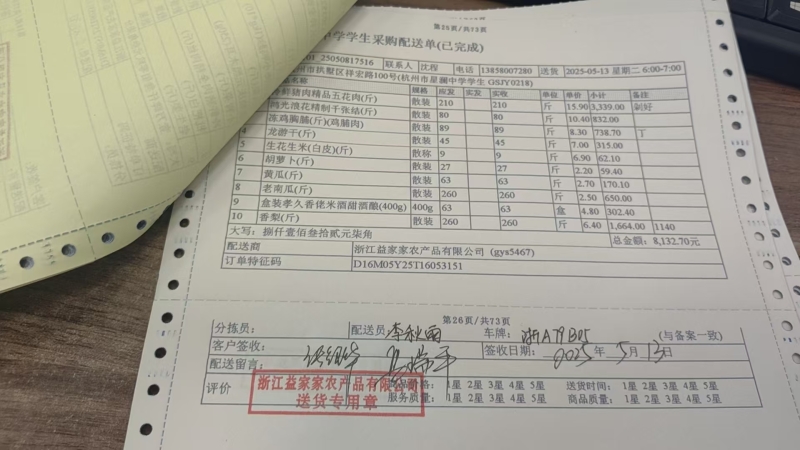 第25页/共73页
中学学生采购配送单(已完成)
01_25050817516 联系人 沈程 电话 13858007280 送货 2025-05-13 星期二 6:00-7:00
杭州市拱墅区祥宏路100号(杭州市星澜中学学生 GSJY0218)
名称 规格 应发 实发 实收 单位 单价 小计 备注
鲜猪肉精品五花肉(斤) 散装 210 210 斤 15.90 3,339.00 剁好
鸿光浪花精制千张结(斤) 散装 80 80 斤 10.40 832.00
冻鸡胸脯(斤)(鸡脯肉) 散装 89 89 斤 8.30 738.70 丁
4 龙游干(斤) 散装 45 45 斤 7.00 315.00
5 生花生米(白皮)(斤) 散称 9 9 斤 6.90 62.10
6 胡萝卜(斤) 散装 27 27 斤 2.20 59.40
7 黄瓜(斤) 散装 63 63 斤 2.70 170.10
8 老南瓜(斤) 散装 260 260 斤 2.50 650.00
9 盒装孝久香佬米酒甜酒酿(400g) 400g 63 63 盒 4.80 302.40
10 香梨(斤) 散装 260 260 斤 6.40 1,664.00 1140
大写: 捌仟壹佰叁拾贰元柒角 总金额: 8,132.70元
配送商 浙江益家家农产品有限公司 (gys5467)
订单特征码 D16M05Y25T16053151
第26页/共73页
分拣员: 配送员: 李秋雨 车牌: 浙A79B05 (与备案一致)
客户签收: 签收日期: 2025年 5月 13日
配送留言:
评价 商品价格: 1星 2星 3星 4星 5星 送货时间: 1星 2星 3星 4星 5星
服务质量: 1星 2星 3星 4星 5星 商品质量: 1星 2星 3星 4星 5星
浙江益家家农产品有限公司
送货专用章